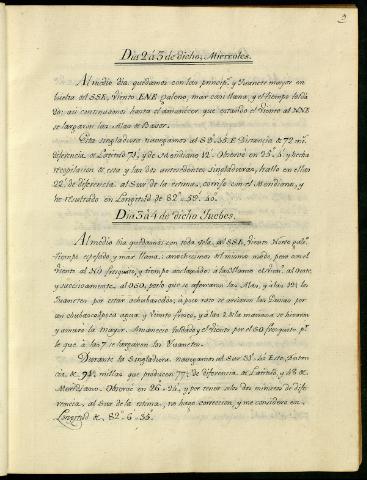 3
Dia 2 á 3 de dicho, Miercoles.
Al medio dia quedamos con las princip.s y Juanete mayor en
buelta del SSE, viento ENE galeno, mar casi llana, y el tiempo tolda-
do; asi continuamos hasta el amanecer que estando el viento al NNE
se largaron las Alas de Babor.
Esta singladura navegamos al S 9° 35' E Distancia de 72 mi.s
diferencia de Latitud 71', y de Meridiano 12'. Observé en 25° 4' y hecha
recopilacion de esta y las dos antecedentes singladuras, hallo en ellas
22' de diferencia al Sur de la estima, corrijo con el Meridiano, y
he resultado en Longitud de 82° 59' 40".
Dia 3 á 4 de dicho Juebes.
Al medio dia quedamos con toda vela, al SSE, viento Norte gal.o
tiempo espesado, y mar llana: anochecimos del mismo modo, pero con el
viento al NO fresquito, y tiempo
al OSO, por lo que se aferraron las Alas, y á las 12 los
Juanetes por estar achubascado; á poco rato se arriaron las Gavias por
un chubasco de agua y viento fresco, y á las 2 de la mañana se hicieron
y amuró la mayor. Amaneció toldado y el viento por el SO fresquito p.r
lo que á las 7 se largaron los Juanetes.
Durante la Singladura navegamos al Sur 33° ¼ Este, Distan-
cia de 94 millas que producen 77' de diferencia de Latitud, y 48 de
Meridiano. Observé en 26° 24', y por tener solo dos minutos de dife-
rencia, al Sur de la estima, no hago correccion, y me considero en
Longitud de 82° 6' 34".